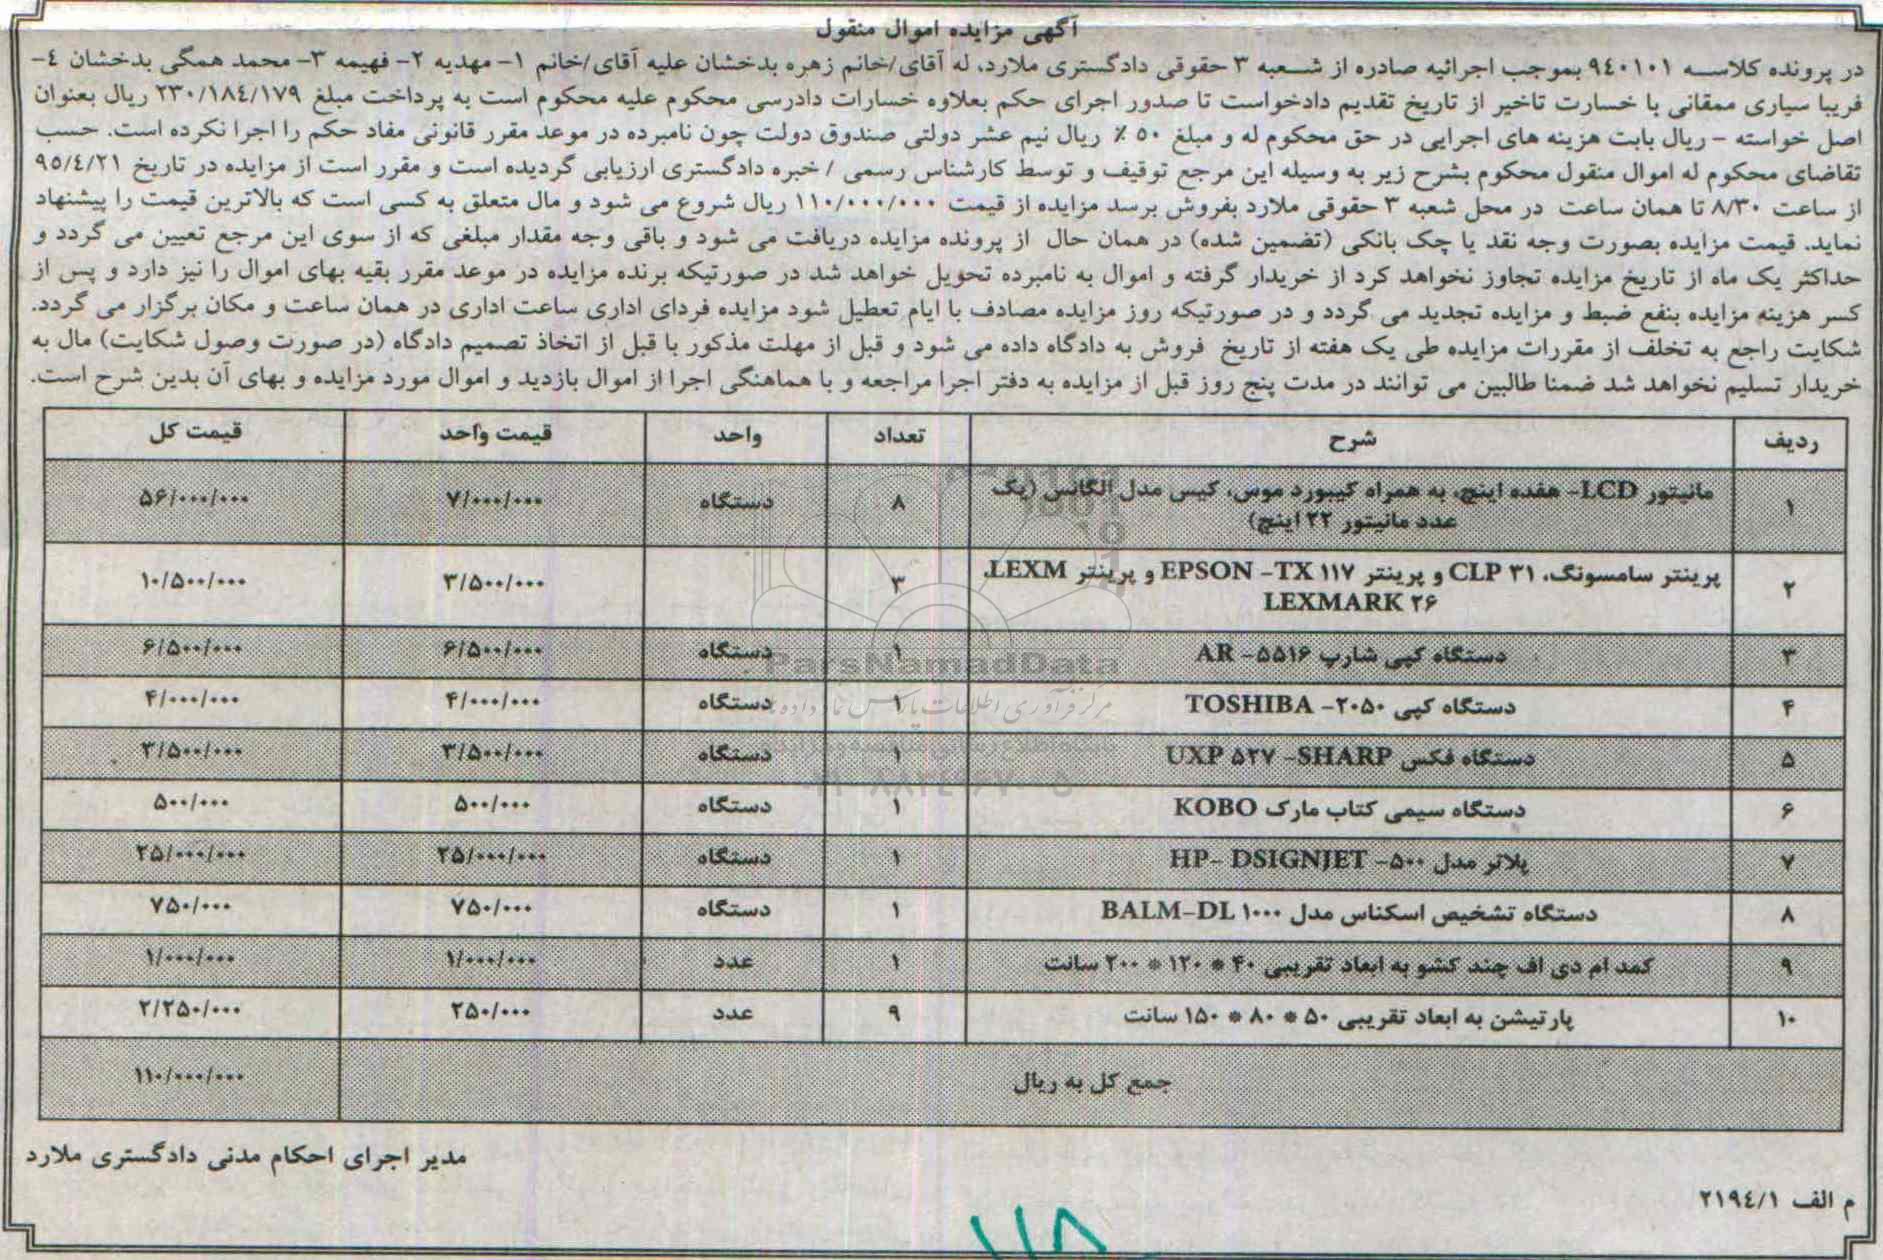 آگهی مزایده اموال منقول
در پرونده کلاسه ۹٤۰۱۰۱ بموجب اجرائیه صادره از شعبه ۳ حقوقی دادگستری ملارد، له آقای/خانم زهره بدخشان علیه آقای/خانم ۱- مهدیه ۲- فهیمه ۳- محمد همگی بدخشان ٤-
فریبا سیاری ممقانی با خسارت تاخیر از تاریخ تقدیم دادخواست تا صدور اجرای حکم بعلاوه خسارات دادرسی محکوم علیه محکوم است به پرداخت مبلغ ۲۳۰/۱۸٤/۱۷۹ ریال بعنوان
اصل خواسته – ریال بابت هزینه های اجرایی در حق محکوم له و مبلغ ۵۰ ٪ ریال نیم عشر دولتی صندوق دولت چون نامبرده در موعد مقرر قانونی مفاد حکم را اجرا نکرده است. حسب
تقاضای محکوم له اموال منقول محکوم بشرح زیر به وسیله این مرجع توقیف و توسط کارشناس رسمی / خبره دادگستری ارزیابی گردیده است و مقرر است از مزایده در تاریخ ۹۵/٤/۲۱
از ساعت ۸/۳۰ تا همان ساعت در محل شعبه ۳ حقوقی ملارد بفروش برسد مزایده از قیمت ۱۱۰/۰۰۰/۰۰۰ ریال شروع می شود و مال متعلق به کسی است که بالاترین قیمت را پیشنهاد
نماید. قیمت مزایده بصورت وجه نقد یا چک بانکی (تضمین شده) در همان حال از پرونده مزایده دریافت می شود و باقی وجه مقدار مبلغی که از سوی این مرجع تعیین می گردد و
حداکثر یک ماه از تاریخ مزایده تجاوز نخواهد کرد از خریدار گرفته و اموال به نامبرده تحویل خواهد شد در صورتیکه برنده مزایده در موعد مقرر بقیه بهای اموال را نیز دارد و پس از
کسر هزینه مزایده بنفع ضبط و مزایده تجدید می گردد و در صورتیکه روز مزایده مصادف با ایام تعطیل شود مزایده فردای اداری ساعت اداری در همان ساعت و مکان برگزار می گردد.
شکایت راجع به تخلف از مقررات مزایده طی یک هفته از تاریخ فروش به دادگاه داده می شود و قبل از مهلت مذکور با قبل از اتخاذ تصمیم دادگاه (در صورت وصول شکایت) مال به
خریدار تسلیم نخواهد شد ضمنا طالبین می توانند در مدت پنج روز قبل از مزایده به دفتر اجرا مراجعه و با هماهنگی اجرا از اموال بازدید و اموال مورد مزایده و بهای آن بدین شرح است.
ردیف شرح تعداد واحد قیمت واحد قیمت کل
۱ مانیتور LCD- هفده اینچ، به همراه کیبورد موس، کیس مدل الگانس (یک ۸ دستگاه ۷/۰۰۰/۰۰۰ ۵۶/۰۰۰/۰۰۰
عدد مانیتور ۲۲ اینچ)
۲ پرینتر سامسونگ، CLP ۳۱ و پرینتر EPSON –TX ۱۱۷ و پرینتر LEXM، ۳ ۳/۵۰۰/۰۰۰ ۱۰/۵۰۰/۰۰۰
LEXMARK ۲۶
۳ دستگاه کپی شارپ AR –۵۵۱۶ ۱ دستگاه ۶/۵۰۰/۰۰۰ ۶/۵۰۰/۰۰۰
۴ دستگاه کپی TOSHIBA –۲۰۵۰ ۱ دستگاه ۴/۰۰۰/۰۰۰ ۴/۰۰۰/۰۰۰
۵ دستگاه فکس UXP ۵۲۷ –SHARP ۱ دستگاه ۳/۵۰۰/۰۰۰ ۳/۵۰۰/۰۰۰
۶ دستگاه سیمی کتاب مارک KOBO ۱ دستگاه ۵۰۰/۰۰۰ ۵۰۰/۰۰۰
۷ پلاتر مدل HP– DSIGNJET –۵۰۰ ۱ دستگاه ۲۵/۰۰۰/۰۰۰ ۲۵/۰۰۰/۰۰۰
۸ دستگاه تشخیص اسکناس مدل BALM–DL ۱۰۰۰ ۱ دستگاه ۷۵۰/۰۰۰ ۷۵۰/۰۰۰
۹ کمد ام دی اف چند کشو به ابعاد تقریبی ۴۰ * ۱۲۰ * ۲۰۰ سانت ۱ عدد ۱/۰۰۰/۰۰۰ ۱/۰۰۰/۰۰۰
۱۰ پارتیشن به ابعاد تقریبی ۵۰ * ۸۰ * ۱۵۰ سانت ۹ عدد ۲۵۰/۰۰۰ ۲/۲۵۰/۰۰۰
جمع کل به ریال ۱۱۰/۰۰۰/۰۰۰
ParsNamadData
مرکز فرآوری اطلاعات پارس نماد داده ها
مدیر اجرای احکام مدنی دادگستری ملارد
م الف ۲۱۹٤/۱
۱۱۸